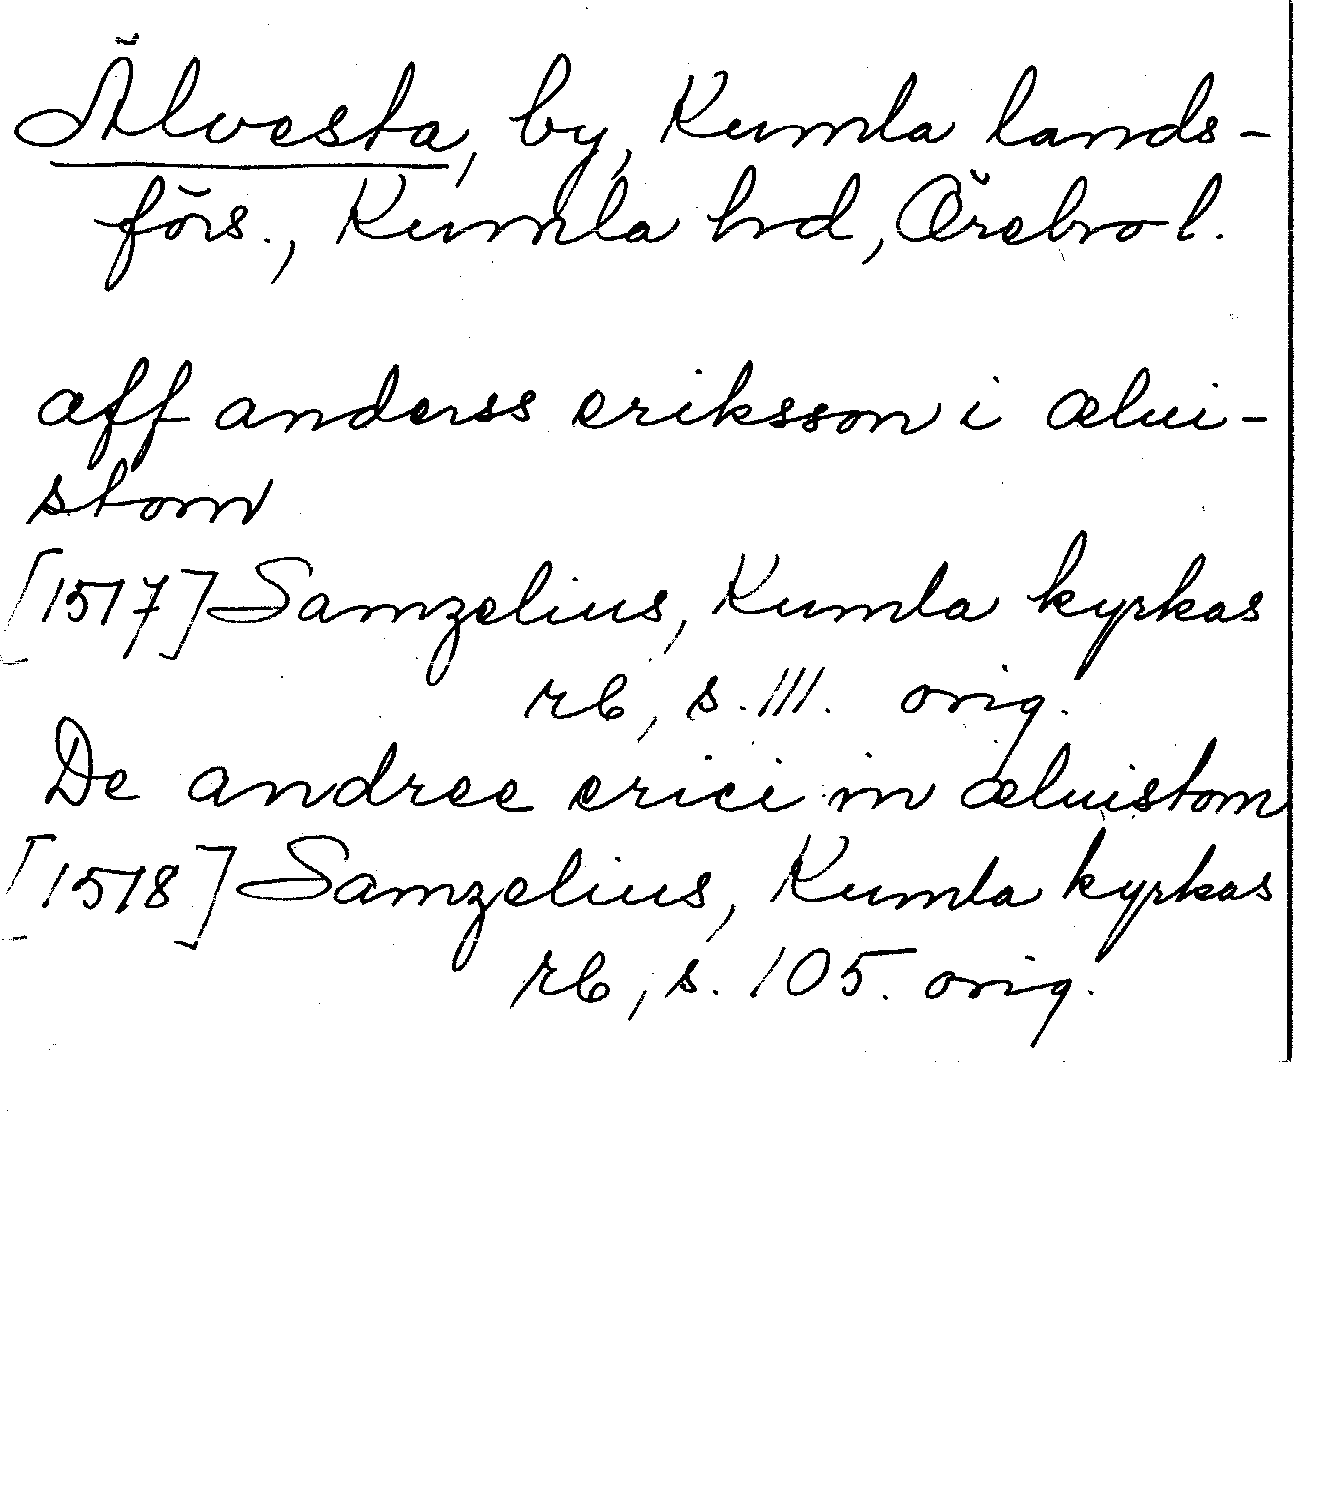 Älvesta, by, Kumla lands-
förs., Kumla hd, Örebro l.
aff anderss eriksson i ælui-
stom
[1517] Samzelius, Kumla kyrkas
rb, s. 111. orig.
De andree erici in æluistom
[1518] Samzelius, Kumla kyrkas
rb, s. 105. orig.